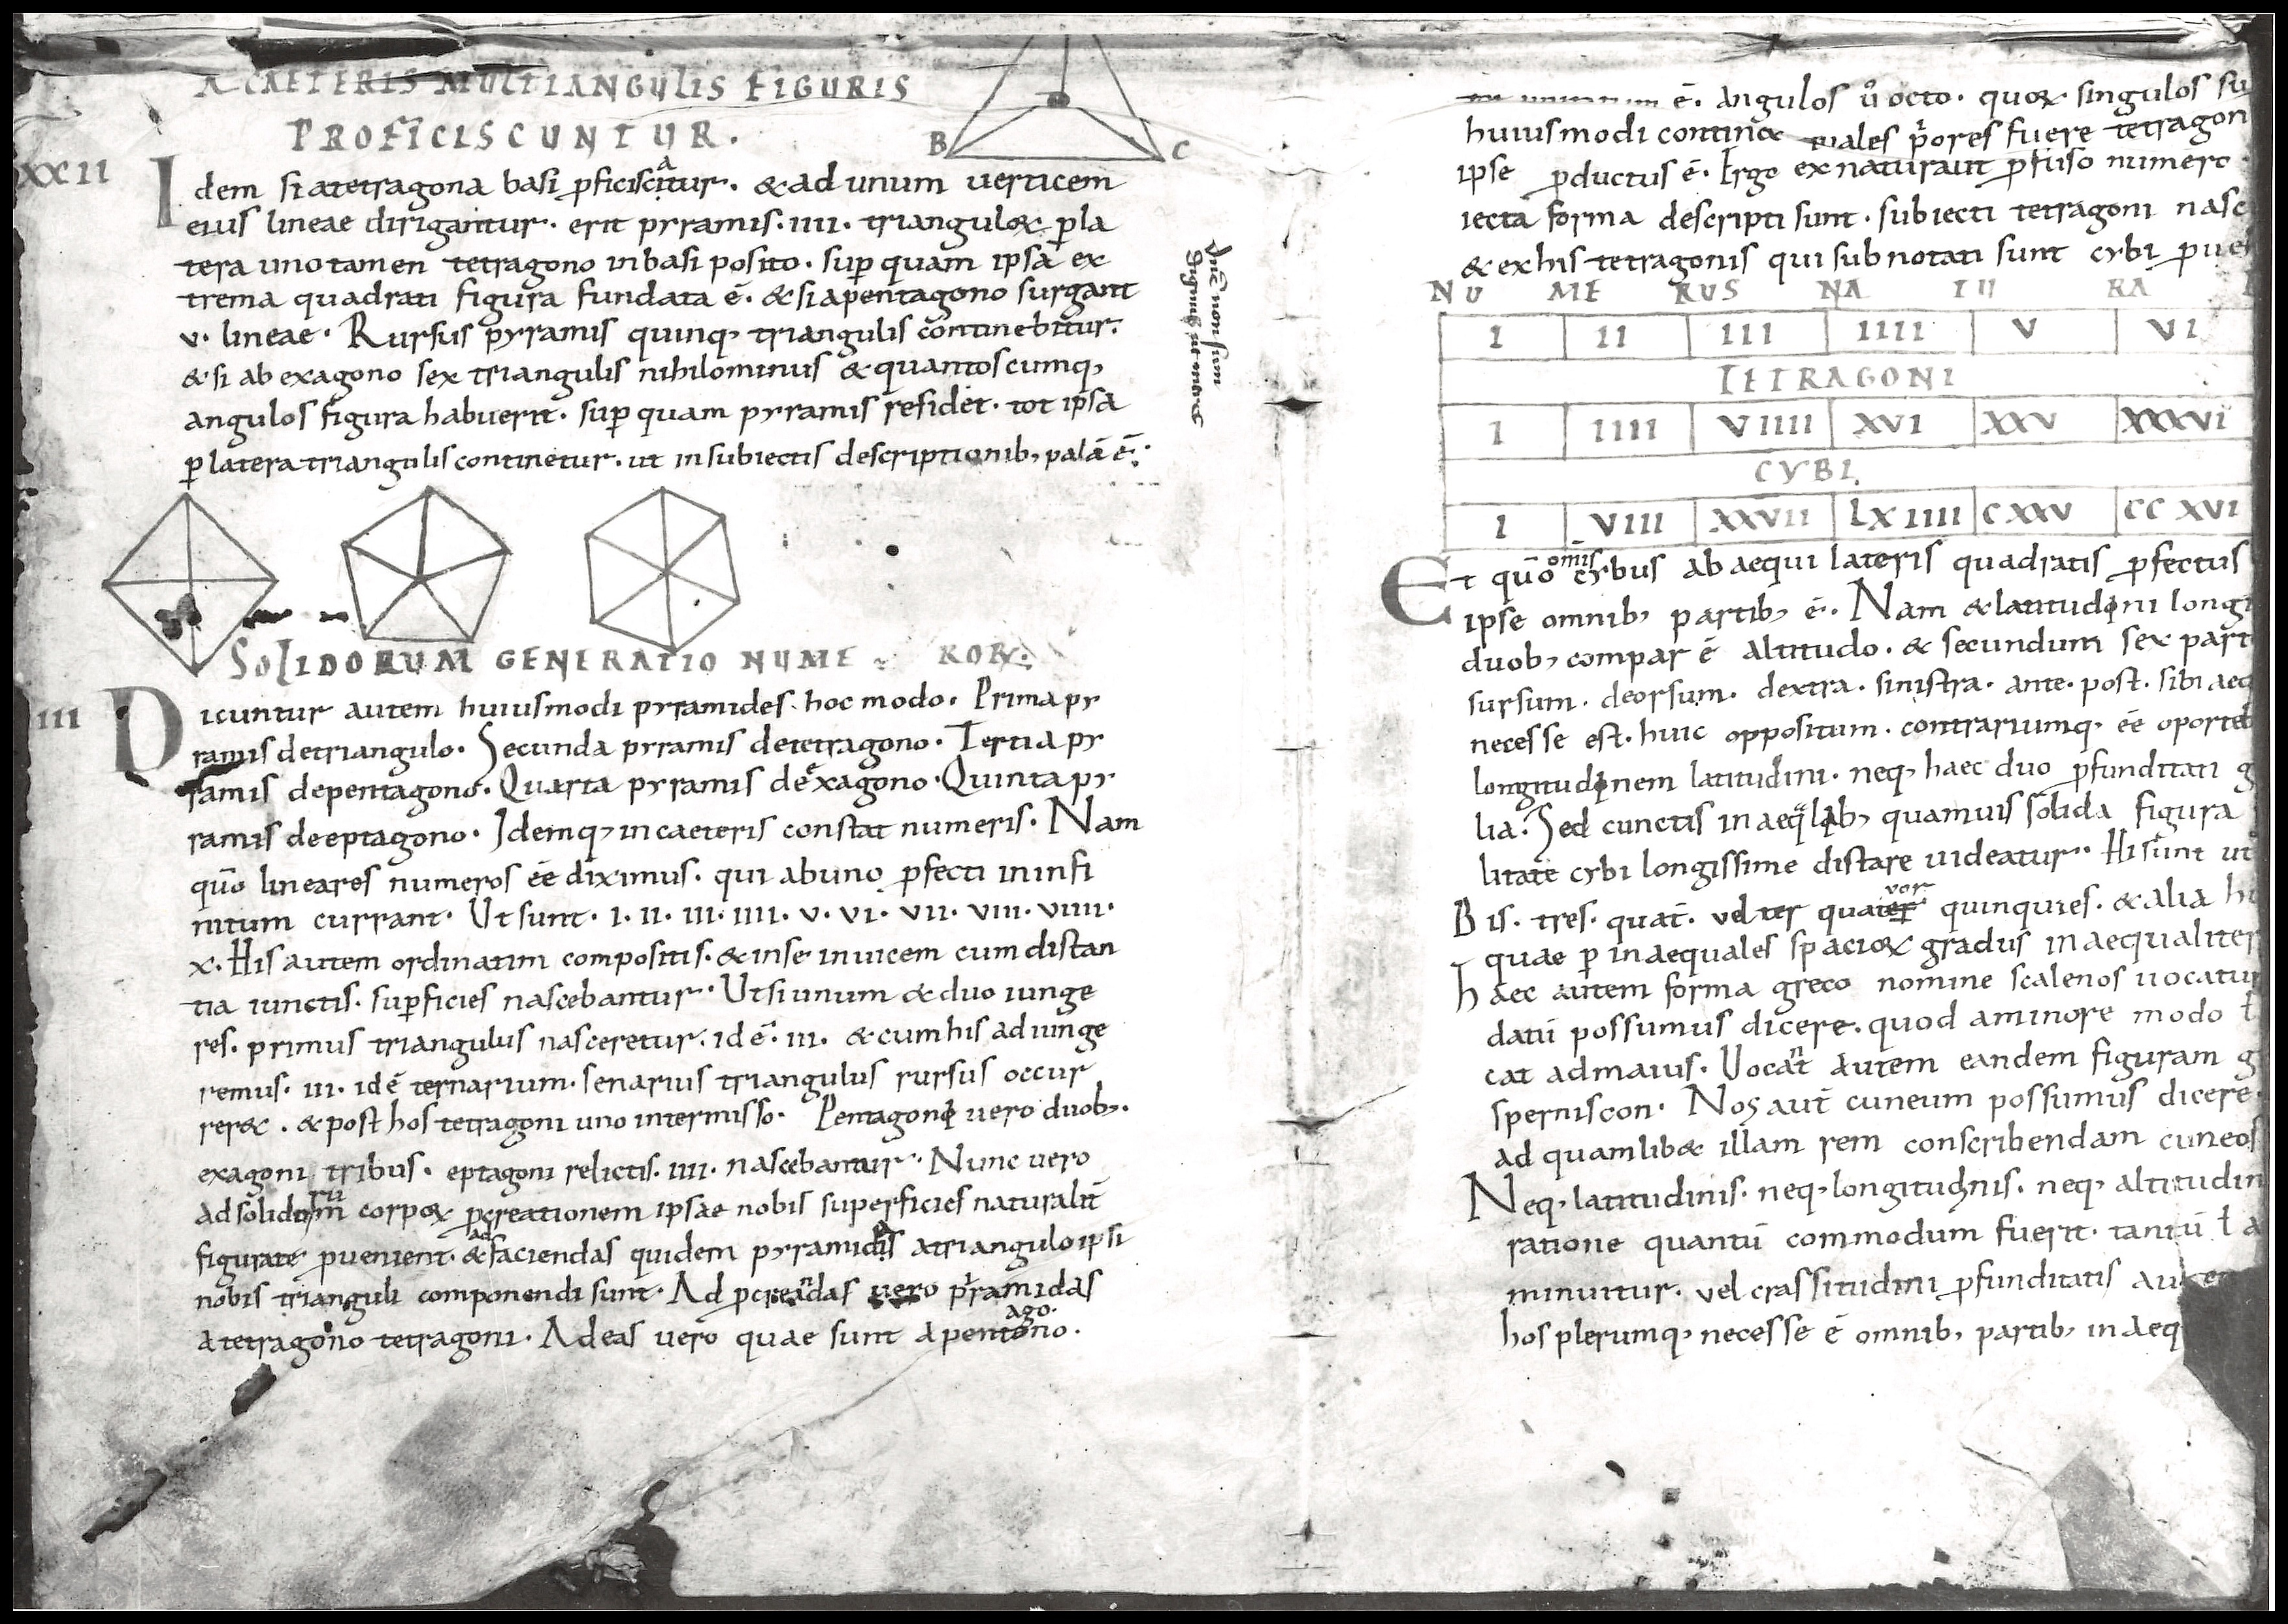 A CAETERIS MULTIANGULIS FIGURIS
PROFICISCUNTUR.
B C
XXII
Idem si a tetragona basi ꝓficiscitur. & ad unum uerticem
eius lineae dirigantur. erit pyramis. IIII. triangul&̨ ꝑ la
tera uno tamen tetragono in basi posito. suꝑ quam ipsa ex
trema quadrati figura fundata ē. & si a pentagono surgant
V. lineae. Rursus pyramis quinq, triangulis continebitur.
& si ab exagono sex triangulis nihilominus & quantoscumq,
angulos figura habuerit. suꝑ quam pyramis residet. tot ipsa
ꝑ latera triangulis continetur. ut in subiectis descriptionib, palā ē.
SOLIDORUM GENERATIO NUMERORꝝ.
III
Dicuntur autem huiusmodi pyramides hoc modo. Prima py
ramis de triangulo. Secunda pyramis de tetragono. Tertia py
ramis de pentagono. Quarta pyramis de exagono. Quinta py
ramis de eptagono. Idemq, in caeteris constat numeris. Nam
quō lineares numeros eē diximus. qui ab uno ꝓfecti in infi
nitum currant. Ut sunt. I. II. III. IIII. V. VI. VII. VIII. VIIII.
X. His autem ordinatim compositis. & in se inuicem cum distan
tia iunctis. suꝑficies nascebantur. Ut si unum & duo iunge
res. primus triangulus nasceretur. id ē. III. & cum his adiunge
remus. III. id ē ternarium. senarius triangulus rursus occur
rer&. & post hos tetragoni uno intermisso. Pentagoni uero duob,.
exagoni tribus. eptagoni relictis. IIII. nascebantur. Nunc uero
ad solidorū corpoꝝ ꝓcreationem ipsae nobis superficies naturalit̄
figurate ꝓuenient. & ad faciendas quidem pyramidas a triangulo ipsi
nobis trianguli componendi sunt. Ad ꝓcreandas uero pyramidas
a tetragono tetragoni. Ad eas uero quae sunt a pentagono.
ē. angulos ů octo. quoꝝ singulos su
huiusmodi contin& quales p̊ores fuere tetragon
ipse ꝓductus ē. Ergo ex naturali ꝓfuso numero
iecta forma descripti sunt. subiecti tetragoni nasc
& ex his tetragonis qui subnotati sunt cybi ꝓue
NU ME RUS NA TU RA
I II III IIII V VI
TETRAGONI
I IIII VIIII XVI XXV XXXVI
CYBI
I VIII XXVII LXIIII CXXV CCXVI
Et quō omis cybus ab aequi lateris quadratis ꝓfectus
ipse omnib, partib, ē. Nam & latitudini longi
duob, compar ē altitudo. & secundum sex part
sursum. deorsum. dextra. sinistra. ante. post. sibi aeq
necesse est. huic oppositum. contrariumq, eē oporteb
longitudinem latitudini. neq, haec duo ꝓfunditati
lia. Sed cunctis inaeq̊lib, quamuis solida figura
litate cybi longissime distare uideatur. Hi sunt ut
Bis. tres. quat̄. vel ter quater quinquies. & alia
quae ꝑ inaequales spacioꝝ gradus inaequaliter
haec autem forma greco nomine scalenos uocatur
datū possumus dicere. quod a minore modo
cat ad maius. Uocant autem eandem figuram
sperniscon. Nos aut̄ cuneum possumus dicere.
ad quamlib& illam rem conscribendam cuneos
Neq, latitudinis. neq, longitudinis. neq, altitudin
ratione quantū commodum fuerit. tantū ł a
minuitur. vel crassitudini ꝓfunditatis
hos plerumq, necesse ē omnib, partib, inaeq